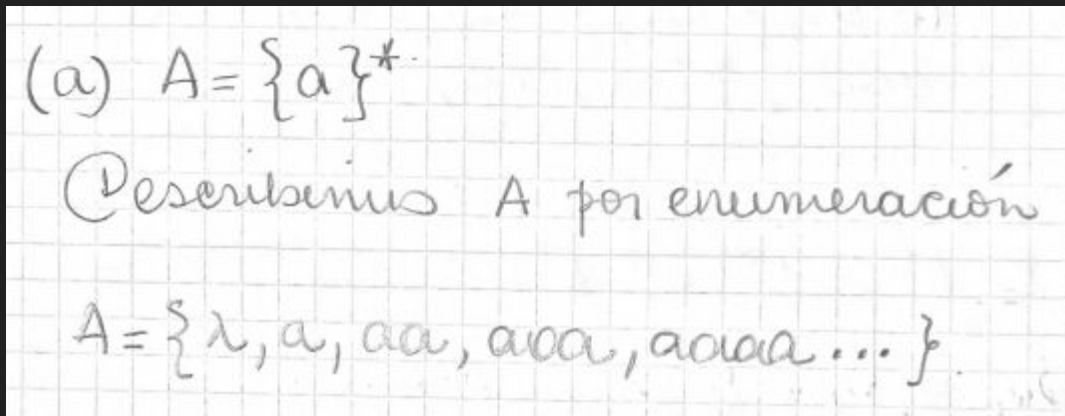 (a) A = {a}*
Describimos A por enumeración
A = {λ, a, aa, aaa, aaaa ... }.